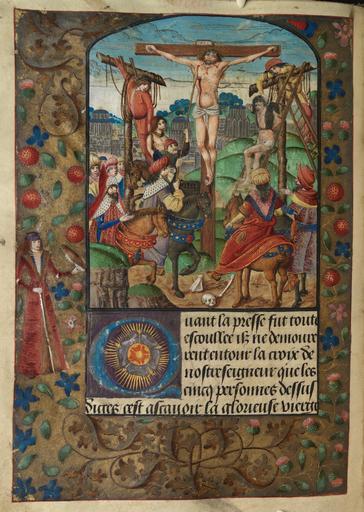 uant la presse fut toute
escoullee Et ne demoure
rent entour la croix de
nostre seigneur que les
cincq personnes dessus
dictes cest ascauoir la glorieuse vierge